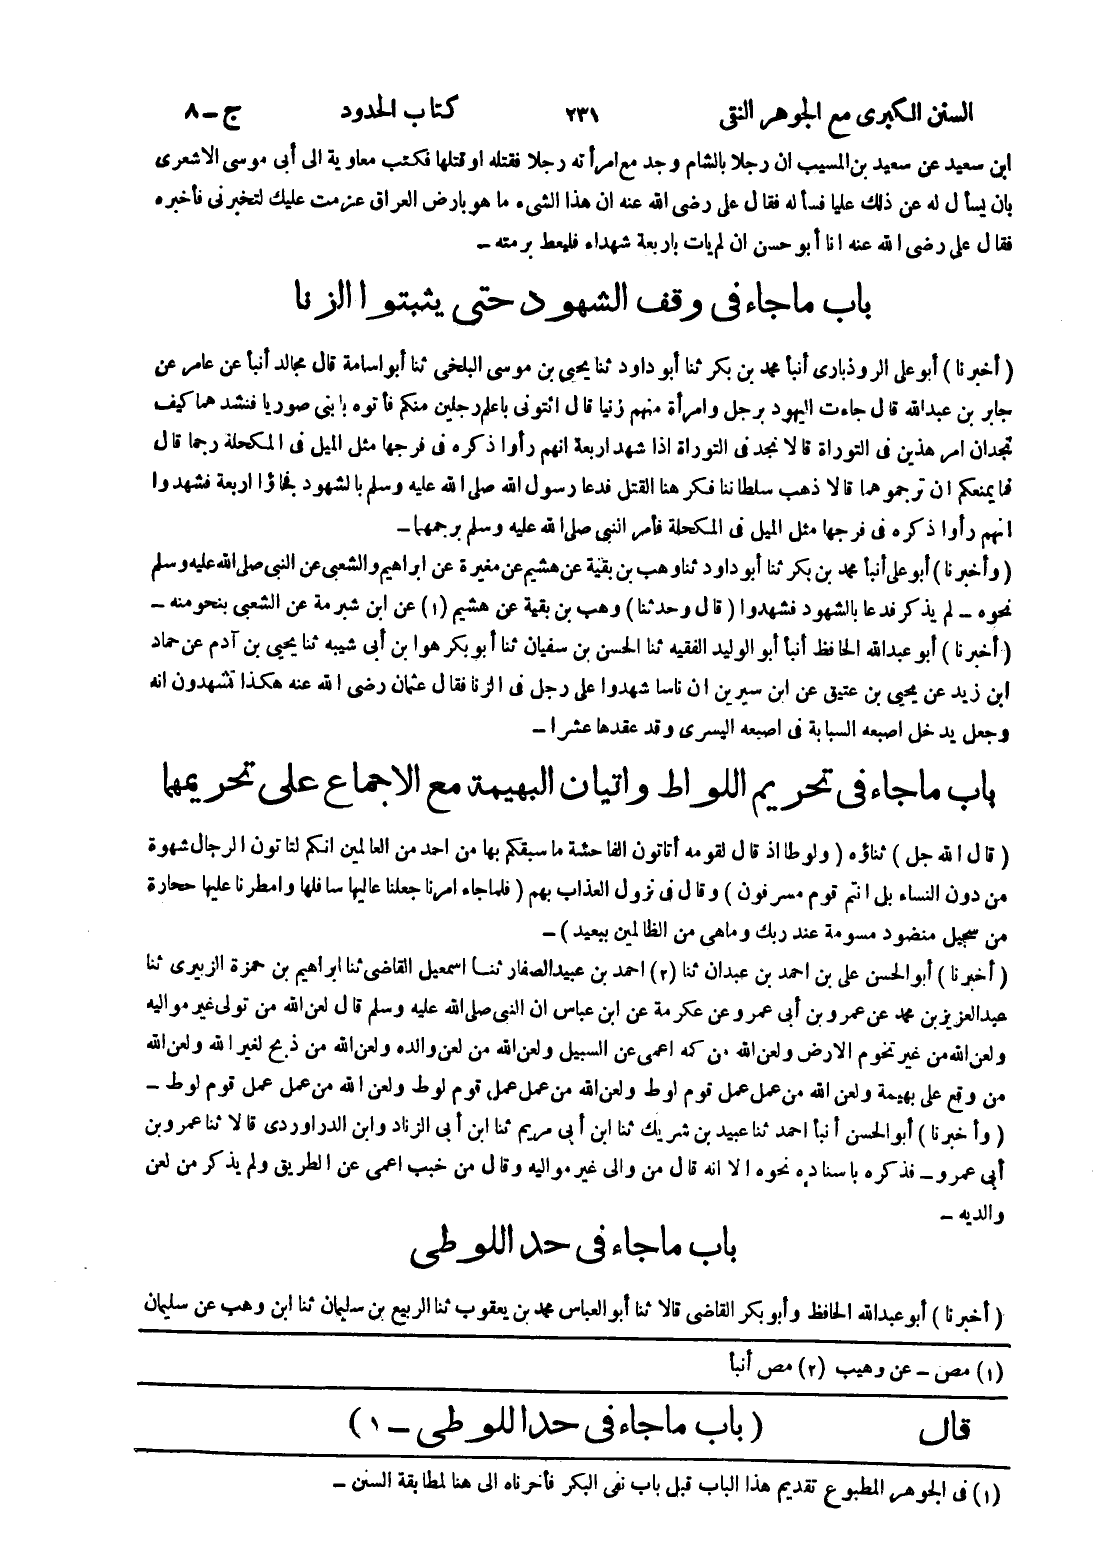 السنن الكبرى مع الجوهر النقى ٢٣١ كتاب الحدود ج ـ ٨
ابن سعيد عن سعيد بن المسيب ان رجلا بالشام وجد مع امرأته رجلا فقتله او قتلها فكتب معاوية الى أبى موسى الاشعرى
بان يسأل له عن ذلك عليا فسأله فقال على رضى الله عنه ان هذا الشىء ما هو بارض العراق عزمت عليك لتخبرنى فأخبره
فقال على رضى الله عنه انا أبو حسن ان لم يات باربعة شهداء فليعط برمته ـ
باب ماجاء فى وقف الشهود حتى يثبتوا الزنا
( أخبرنا ) أبو على الروذبارى أنبأ محمد بن بكر ثنا أبو داود ثنا يحيى بن موسى البلخى ثنا أبو اسامة قال مجالد أنبأ عن عامر عن
جابر بن عبدالله قال جاءت اليهود برجل وامرأة منهم زنيا قال ائتونى باعلم رجلين منكم فأتوه بابنى صوريا فنشدهما كيف
تجدان امر هذين فى التوراة قالا نجد فى التوراة اذا شهد اربعة انهم رأوا ذكره فى فرجها مثل الميل فى المكحلة رجما قال
فما يمنعكم ان ترجموهما قالا ذهب سلطاننا فكرهنا القتل فدعا رسول الله صلى الله عليه وسلم بالشهود فجاؤا اربعة فشهدوا
انهم رأوا ذكره فى فرجها مثل الميل فى المكحلة فأمر النبى صلى الله عليه وسلم برجمهما ـ
( وأخبرنا ) أبو على أنبأ محمد بن بكر ثنا أبو داود ثنا وهب بن بقية عن هشيم عن مغيرة عن ابراهيم والشعبى عن النبى صلى الله عليه وسلم
نحوه ـ لم يذكر فدعا بالشهود فشهدوا ( قال وحدثنا ) وهب بن بقية عن هشيم (١) عن ابن شبرمة عن الشعبى بنحو منه ـ
( أخبرنا ) أبو عبدالله الحافظ أنبأ أبو الوليد الفقيه ثنا الحسن بن سفيان ثنا أبو بكر هو ابن أبى شيبه ثنا يحيى بن آدم عن حماد
ابن زيد عن يحيى بن عتيق عن ابن سيرين ان ناسا شهدوا على رجل فى الزنا فقال عثمان رضى الله عنه هكذا تشهدون انه
وجعل يدخل اصبعه السبابة فى اصبعه اليسرى وقد عقدها عشرا ـ
باب ماجاء فى تحريم اللواط واتيان البهيمة مع الاجماع على تحريمهما
( قال الله جل ) ثناؤه ( ولوطا اذ قال لقومه أتاتون الفاحشة ما سبقكم بها من احد من العالمين انكم لتاتون الرجال شهوة
من دون النساء بل انتم قوم مسرفون ) وقال فى نزول العذاب بهم ( فلما جاء امرنا جعلنا عاليها سافلها وامطرنا عليها حجارة
من سجيل منضود مسومة عند ربك وماهى من الظالمين ببعيد ) ـ
( أخبرنا ) أبو الحسن على بن احمد بن عبدان ثنا (٢) احمد بن عبيد الصفار ثنا اسمعيل القاضى ثنا ابراهيم بن حمزة الزبيرى ثنا
عبدالعزيز بن محمد عن عمرو بن أبى عمرو عن عكرمة عن ابن عباس ان النبى صلى الله عليه وسلم قال لعن الله من تولى غير مواليه
ولعن الله من غير تخوم الارض ولعن الله من كمه اعمى عن السبيل ولعن الله من لعن والده ولعن الله من ذبح لغير الله ولعن الله
من وقع على بهيمة ولعن الله من عمل عمل قوم لوط ولعن الله من عمل عمل قوم لوط ولعن الله من عمل عمل قوم لوط ـ
( وأخبرنا ) أبو الحسن أنبأ احمد ثنا عبيد بن شريك ثنا ابن أبى مريم ثنا ابن أبى الزناد وابن الدراوردى قالا ثنا عمرو بن
أبى عمرو ـ فذكره باسناده نحوه الا انه قال من والى غير مواليه وقال من خبب اعمى عن الطريق ولم يذكر من لعن
والديه ـ
باب ماجاء فى حد اللوطى
( أخبرنا ) أبو عبدالله الحافظ وأبو بكر القاضى قالا ثنا أبو العباس محمد بن يعقوب ثنا الربيع بن سليمان ثنا ابن وهب عن سليمان
(١) مص ـ عن وهيب (٢) مص أنبأ
قال ( باب ماجاء فى حد اللوطى ـ ١ )
(١) فى الجوهر المطبوع تقديم هذا الباب قبل باب نفى البكر فأخرناه الى هنا لمطابقة السنن ـ